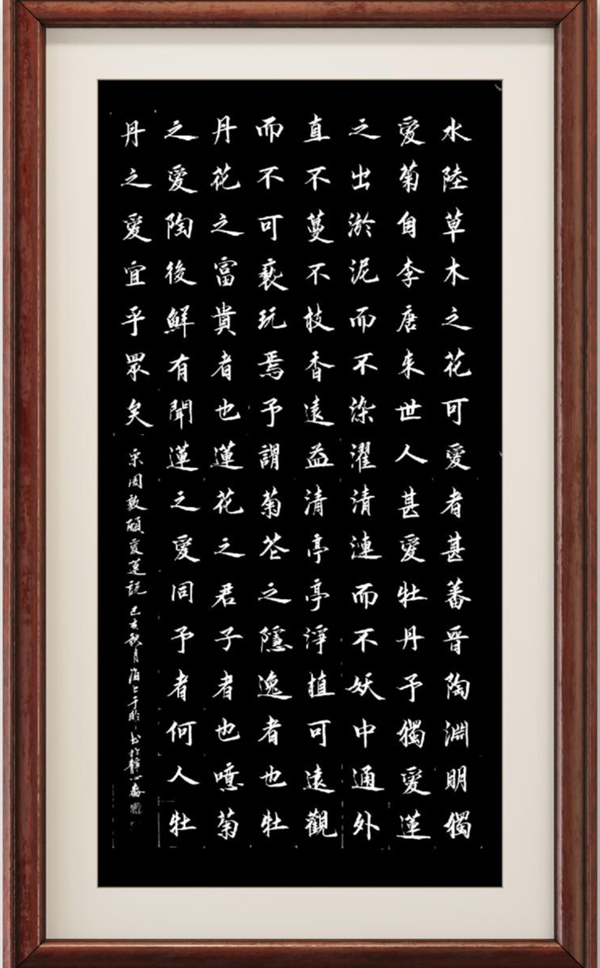 水陸草木之花可愛者甚蕃晉陶淵明獨
愛菊自李唐来世人甚愛牡丹予獨愛蓮
之出淤泥而不染濯清漣而不妖中通外
直不蔓不枝香遠益清亭亭淨植可遠觀
而不可褻玩焉予謂菊花之隱逸者也牡
丹花之富貴者也蓮花之君子者也噫菊
之愛陶後鮮有聞蓮之愛同予者何人牡
丹之愛宜乎眾矣 宋周敦頤愛蓮説 己亥秋月海上